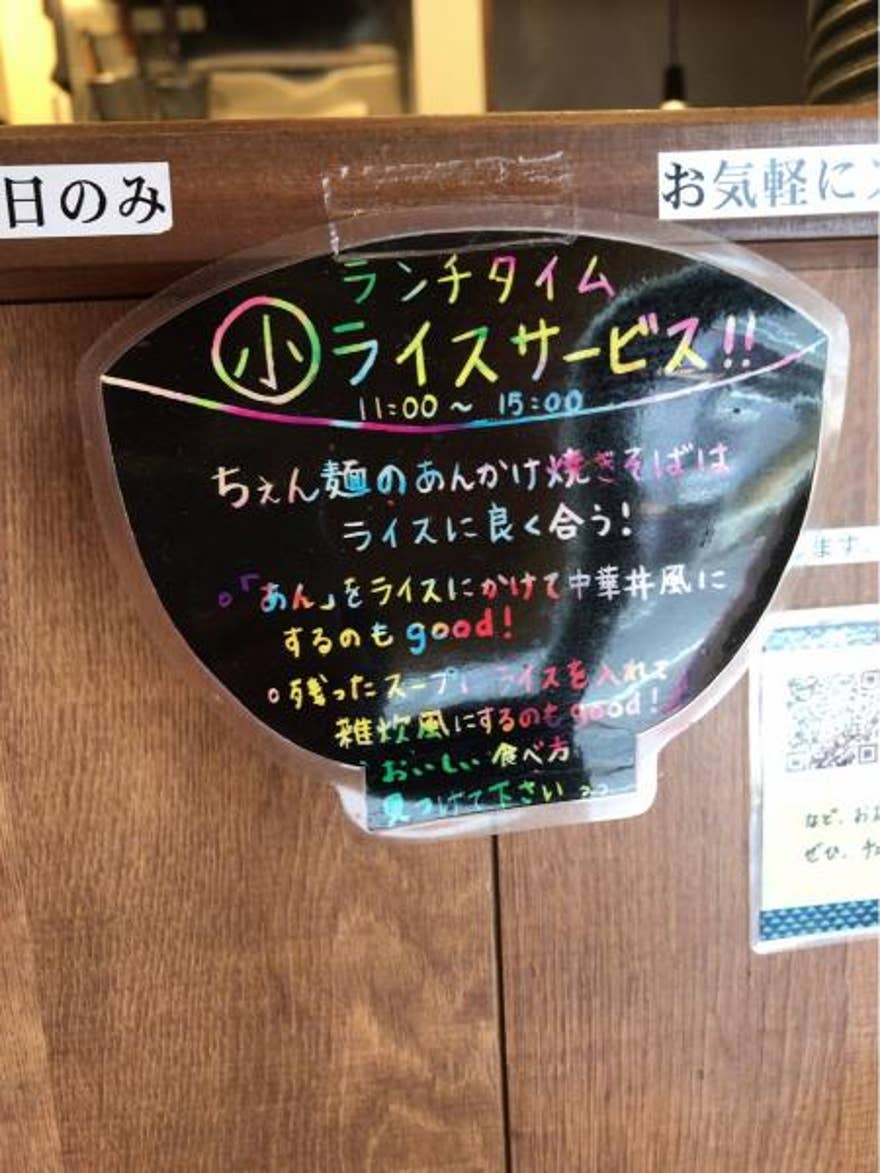 日のみ
お気軽に
ランチタイム
小ライスサービス!!
11:00～15:00
ちぇん麺のあんかけ焼きそばは
ライスに良く合う!
○「あん」をライスにかけて中華丼風に
するのもgood!
○残ったスープにライスを入れて
雑炊風にするのもgood!
おいしい食べ方
見つけて下さい
ます。
など、お
ぜひ、チ